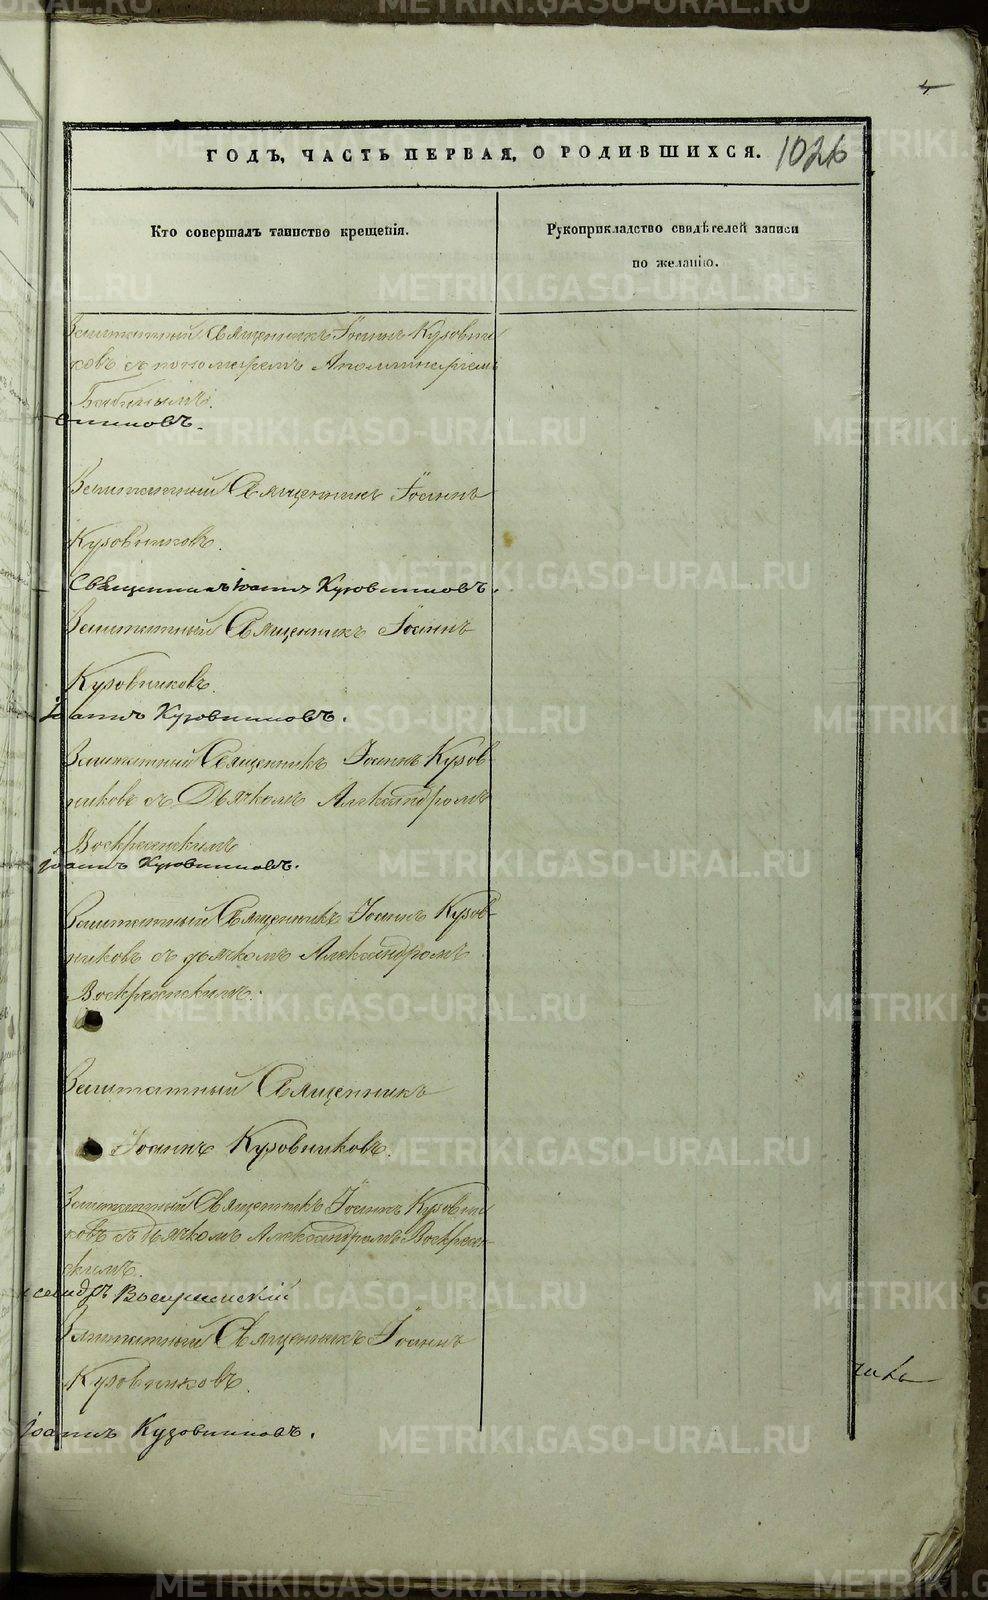 4
ГОДЪ, ЧАСТЬ ПЕРВАЯ, О РОДИВШИХСЯ. 1026
Кто совершалъ таинство крещенія.
Рукоприкладство свидѣтелей записи
по желанію.
Заштатный Священникъ Іоаннъ Кузовни
ковъ съ пономаремъ Аполлинаріемъ
Бабинымъ.
Заштатный Священникъ Іоаннъ
Кузовниковъ.
Священникъ Іоаннъ Кузовниковъ.
Заштатный Священникъ Іоаннъ
Кузовниковъ.
Іоаннъ Кузовниковъ.
Заштатный Священникъ Іоаннъ Кузов-
никовъ съ Дьячкомъ Александромъ
Воскресенскимъ
Іоаннъ Кузовниковъ.
Заштатный Священникъ Іоаннъ Кузов-
никовъ съ дьячкомъ Александромъ
Воскресенскимъ.
Заштатный Священникъ
Іоаннъ Кузовниковъ.
Заштатный Священникъ Іоаннъ Кузовни
ковъ съ Дьячкомъ Александромъ Воскресен-
скимъ.
ксандръ Воскресенскій
Заштатный Священникъ Іоаннъ
Кузовниковъ.
Іоаннъ Кузовниковъ.
METRIKI.GASO-URAL.RU